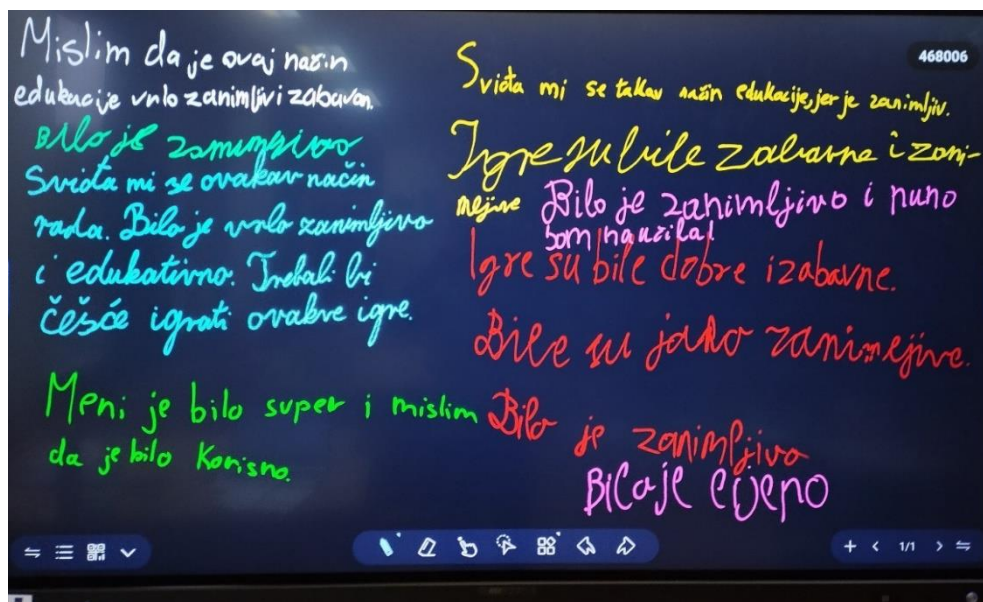 Mislim da je ovaj način
edukacije vrlo zanimljiv i zabavan.
Bilo je zanimljivo
Sviđa mi se ovakav način
rada. Bilo je vrlo zanimljivo
i edukativno. Trebali bi
češće igrati ovakve igre.
Meni je bilo super i mislim
da je bilo korisno.
468006
Sviđa mi se takav način edukacije, jer je zanimljiv.
Igre su bile zabavne i zani-
mljive
Bilo je zanimljivo i puno
sam naučila!
Igre su bile dobre i zabavne.
Bile su jako zanimljive.
Bilo je zanimljivo
Bilo je lijepo
1/1